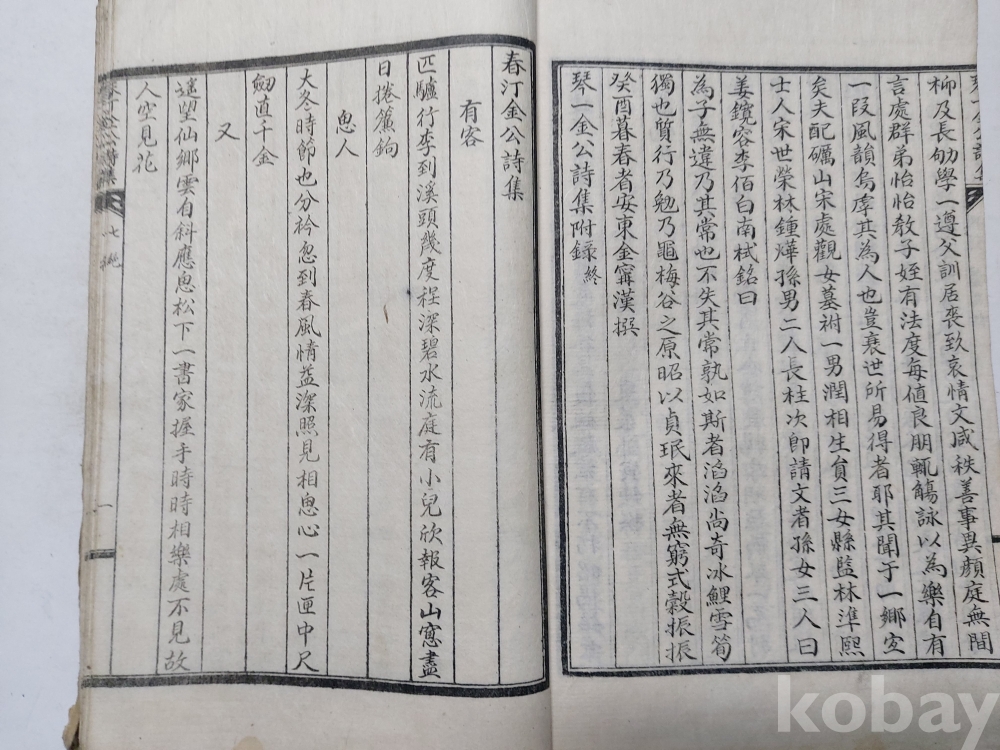 柳及長劬學一遵父訓居喪致哀情文咸秩善事異顔庭無間
言處群弟怡怡敎子姪有法度每值良朋輒觴詠以為樂自有
一段風韻烏虖其為人也豈衰世所易得者耶其聞于一鄉宜
矣夫配礪山宋處觀女墓祔一男潤相生貟三女縣監林準熙
士人宋世榮林鍾燁孫男二八長柱次卽請文者孫女三人曰
姜鑧容李佰白南栻銘曰
為子無違乃其常也不失其常孰如斯者滔滔尚奇冰鯉雪筍
獨也質行乃勉乃黽梅谷之原昭以貞珉來者無窮式穀振振
癸酉暮春者安東金甯漢撰
琴一金公詩集附錄終
春汀金公詩集
有客
匹驢行李到溪頭幾度程深碧水流庭有小兒欣報客山窓盡
日捲簾鉤
思人
大冬時節也分衿忽到春風情益深照見相思心一片匣中尺
劒直千金
又
遙望仙鄉雲自斜應思松下一書家握手時時相樂處不見故
人空見花
春汀金公詩集
一
kobay